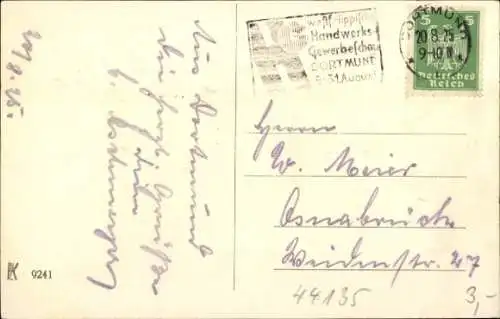 20/8. 25.
Aus Dortmund
die herzl. Grüße
westf. lippische
Handwerks-
Gewerbeschau
DORTMUND
8-31 August
DORTMUND
20.8.25
9-10 V
5 5
Deutsches
Reich
Herrn
W. Meier
Osnabrück
Weidenstr. 27
K 9241
44135
3,-